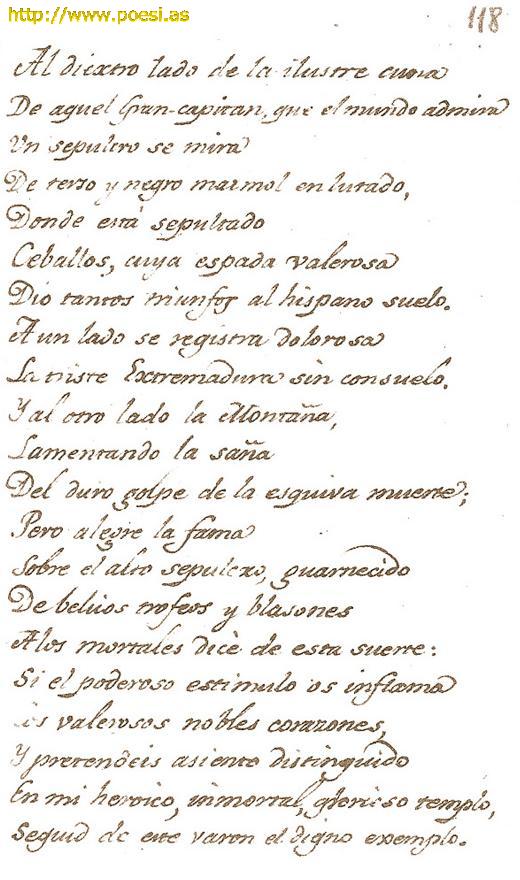 http://www.poesi.as
118
Al diextro lado de la ilustre cuna
De aquel Gran-capitan, que el mundo admira
Un sepulcro se mira
De terso y negro marmol enlutado,
Donde está sepultado
Ceballos, cuya espada valerosa
Dio tantos triunfos al hispano suelo.
A un lado se registra dolorosa
La triste Extremadura sin consuelo.
Y al otro lado la Montaña,
Lamentando la saña
Del duro golpe de la esquiva muerte;
Pero alegre la fama
Sobre el alto sepulcro, guarnecido
De belicos trofeos y blasones
A los mortales dice de esta suerte:
Si el poderoso estimulo os inflama
valerosos nobles corazones,
Y pretendeis asiento distinguido
En mi heroico, inmortal, glorioso templo,
Seguid de este varon el digno exemplo.